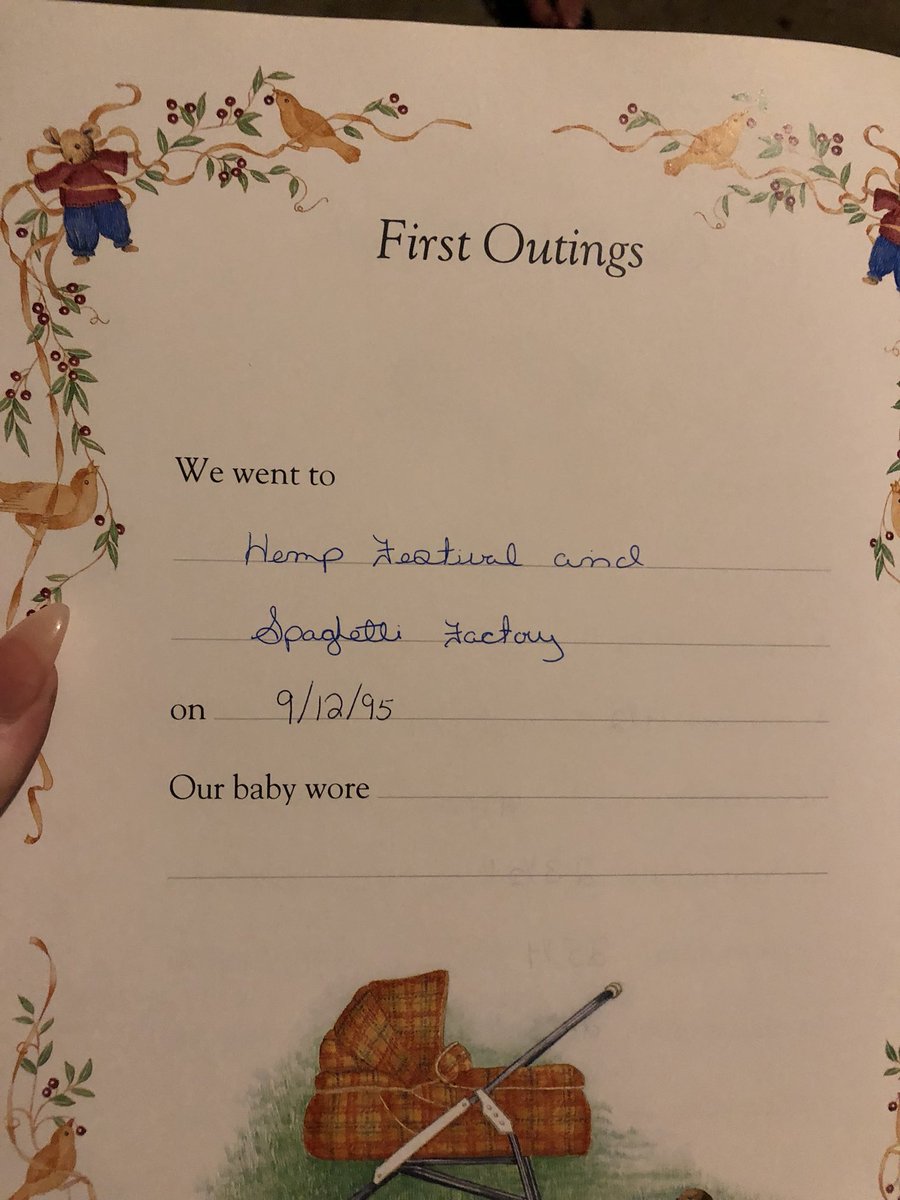 First Outings
We went to
Hemp Festival and
Spaghetti Factory
on 9/12/95
Our baby wore